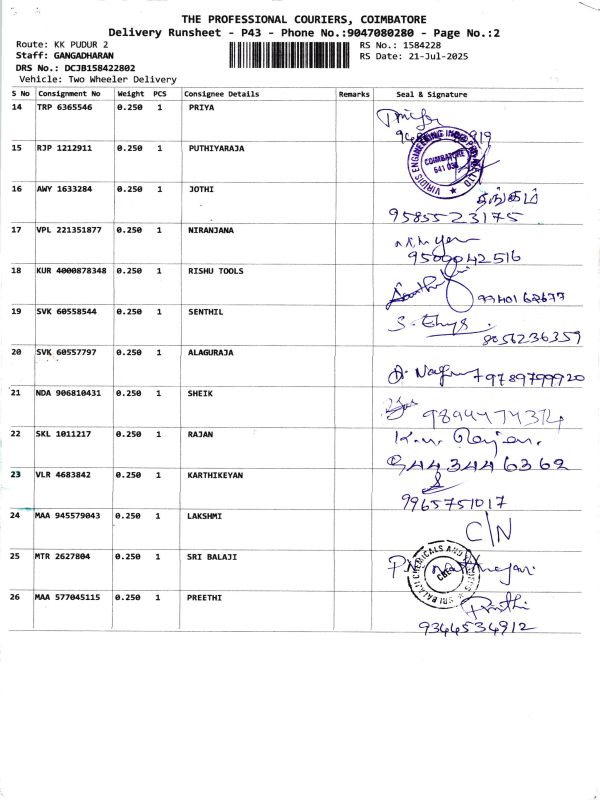 THE PROFESSIONAL COURIERS, COIMBATORE
Delivery Runsheet - P43 - Phone No.:9047080280 - Page No.:2
Route: KK PUDUR 2
RS No.: 1584228
Staff: GANGADHARAN
RS Date: 21-Jul-2025
DRS No.: DCJB158422802
Vehicle: Two Wheeler Delivery
S No Consignment No Weight PCS Consignee Details Remarks Seal & Signature
14 TRP 6365546 0.250 1 PRIYA
15 RJP 1212911 0.250 1 PUTHIYARAJA
VIRIDIS ENGINEERING COIMBATORE 641 038
16 AWY 1633284 0.250 1 JOTHI
தங்கம்
9585523175
17 VPL 221351877 0.250 1 NIRANJANA
9500042516
18 KUR 4000878348 0.250 1 RISHU TOOLS
9940162677
19 SVK 60558544 0.250 1 SENTHIL
8056236359
20 SVK 60557797 0.250 1 ALAGURAJA
9789799920
21 NDA 906810431 0.250 1 SHEIK
9894474374
22 SKL 1011217 0.250 1 RAJAN
K.U. Rajan.
9443446362
23 VLR 4683842 0.250 1 KARTHIKEYAN
9965751017
24 MAA 945579043 0.250 1 LAKSHMI
C/N
25 MTR 2627804 0.250 1 SRI BALAJI
SRI BALAJI CHEMICALS AND
26 MAA 577045115 0.250 1 PREETHI
Preethi
9344534912